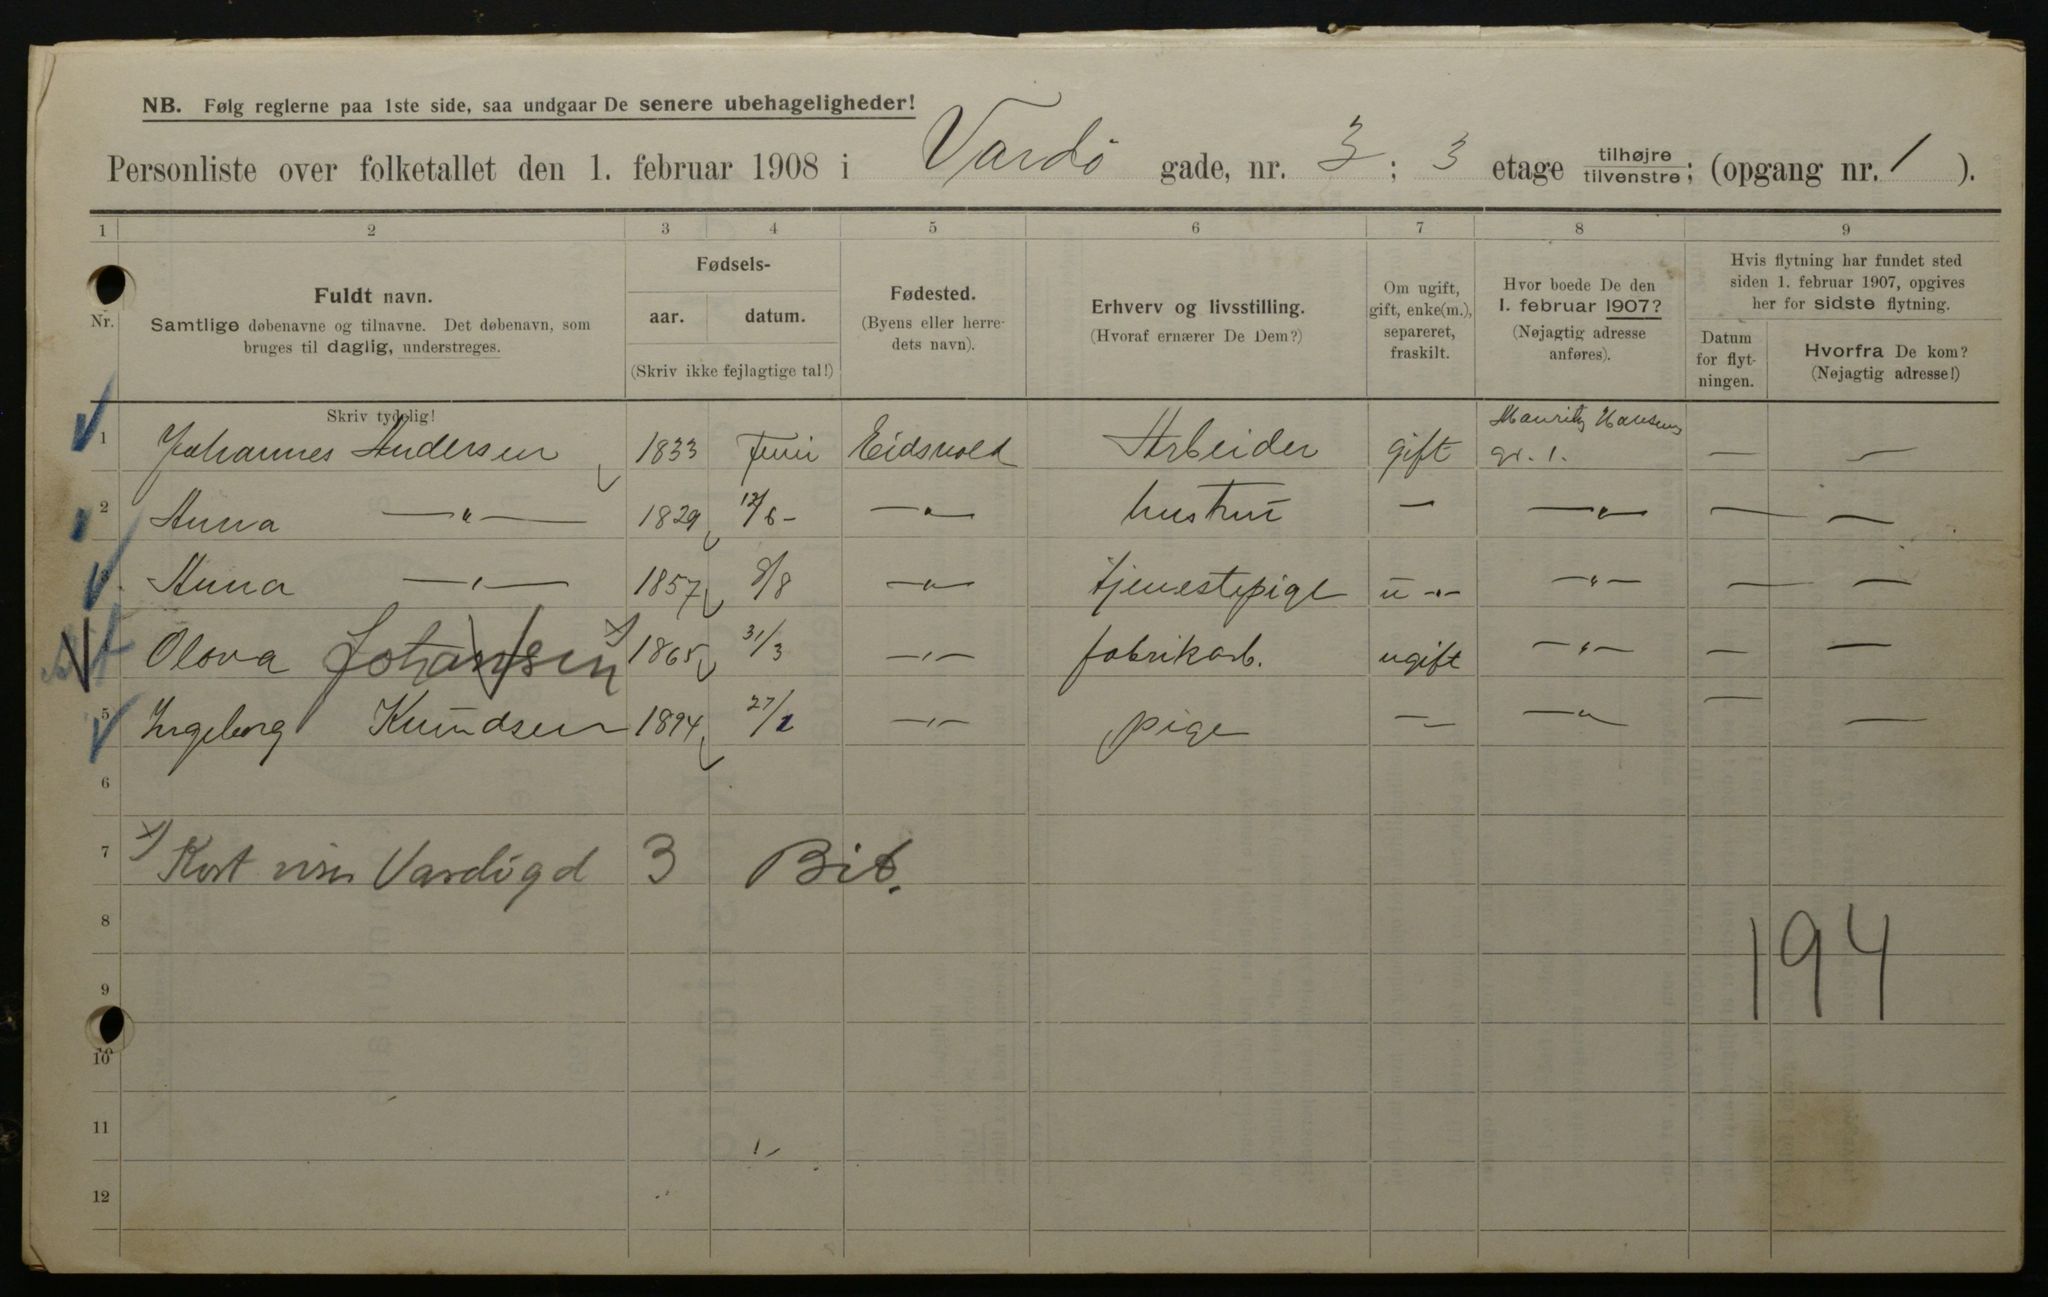 NB. Følg reglerne paa 1ste side, saa undgaar De senere ubehageligheder!
Personliste over folketallet den 1. februar 1908 i Vardö gade, nr. 3 ; 3 etage tilhøjre tilvenstre ; (opgang nr. 1 ).
1 2 3 4 5 6 7 8 9
Nr.
Fuldt navn.
Samtlige døbenavne og tilnavne. Det døbenavn, som
bruges til daglig, understreges.
Skriv tydelig!
Fødsels-
aar. datum.
(Skriv ikke fejlagtige tal!)
Fødested.
(Byens eller herre-
dets navn).
Erhverv og livsstilling.
(Hvoraf ernærer De Dem?)
Om ugift,
gift, enke(m.),
separeret,
fraskilt.
Hvor boede De den
1. februar 1907?
(Nøjagtig adresse
anføres).
Hvis flytning har fundet sted
siden 1. februar 1907, opgives
her for sidste flytning.
Datum
for flyt-
ningen.
Hvorfra De kom?
(Nøjagtig adresse!)
1 Johannes Andersen 1833 Juni Eidsvold Arbeider gift Mauritz Hansens gd. 1. — —
2 Anna —"— 1829 12/6 - —"— hustru — —"— — —
Anna —"— 1857 8/8 —"— tjenestepige u -"- —"— — —
Olova Johansen x) 1865 31/3 —"— fabrikarb. ugift —"— — —
5 Ingeborg Knudsen 1894 27/1 —"— pige — —"— — —
6
7 x) Kort viser Vardøgd 3
8
194
9
10
11
12